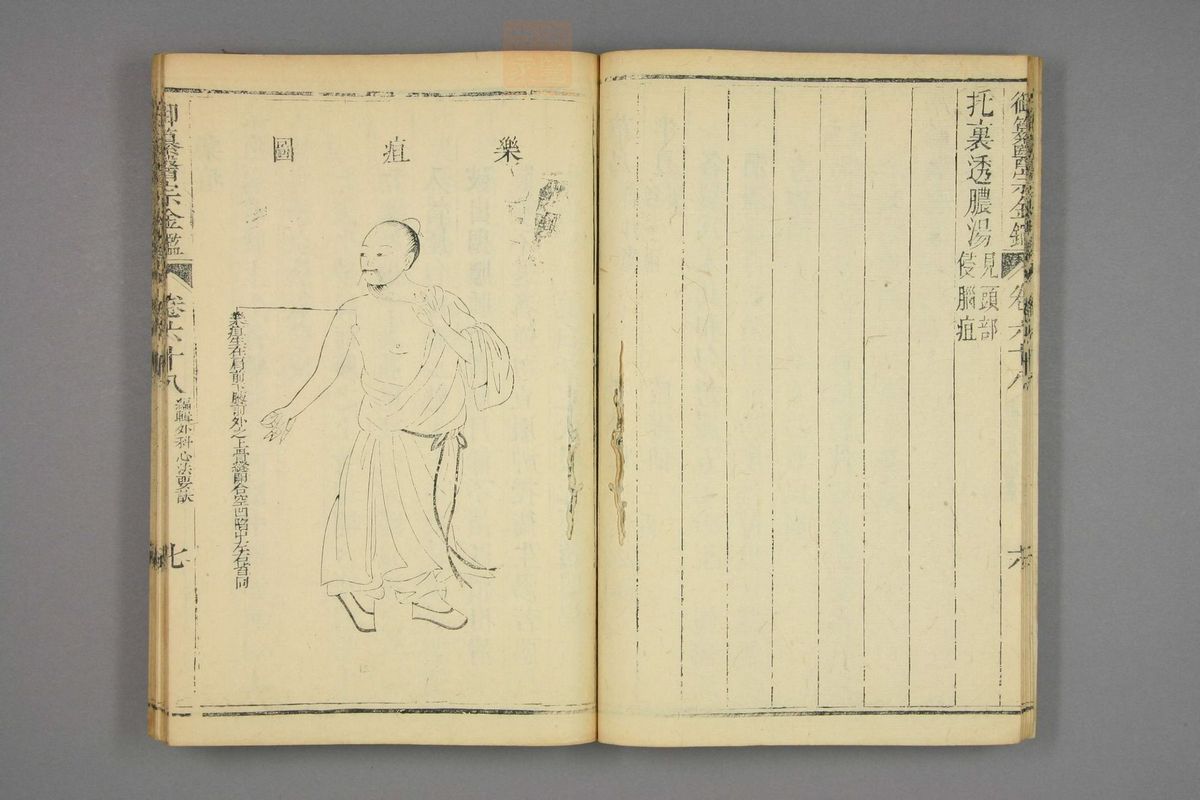 御纂醫宗金鑑
卷六十八
六
托裏透膿湯
見頭部
侵腦疽
樂疽圖
樂疽生在肩前下腋前外之上骨縫開合空凹陷中左右皆同
御纂醫宗金鑑
卷六十八
編輯外科心法要訣
七